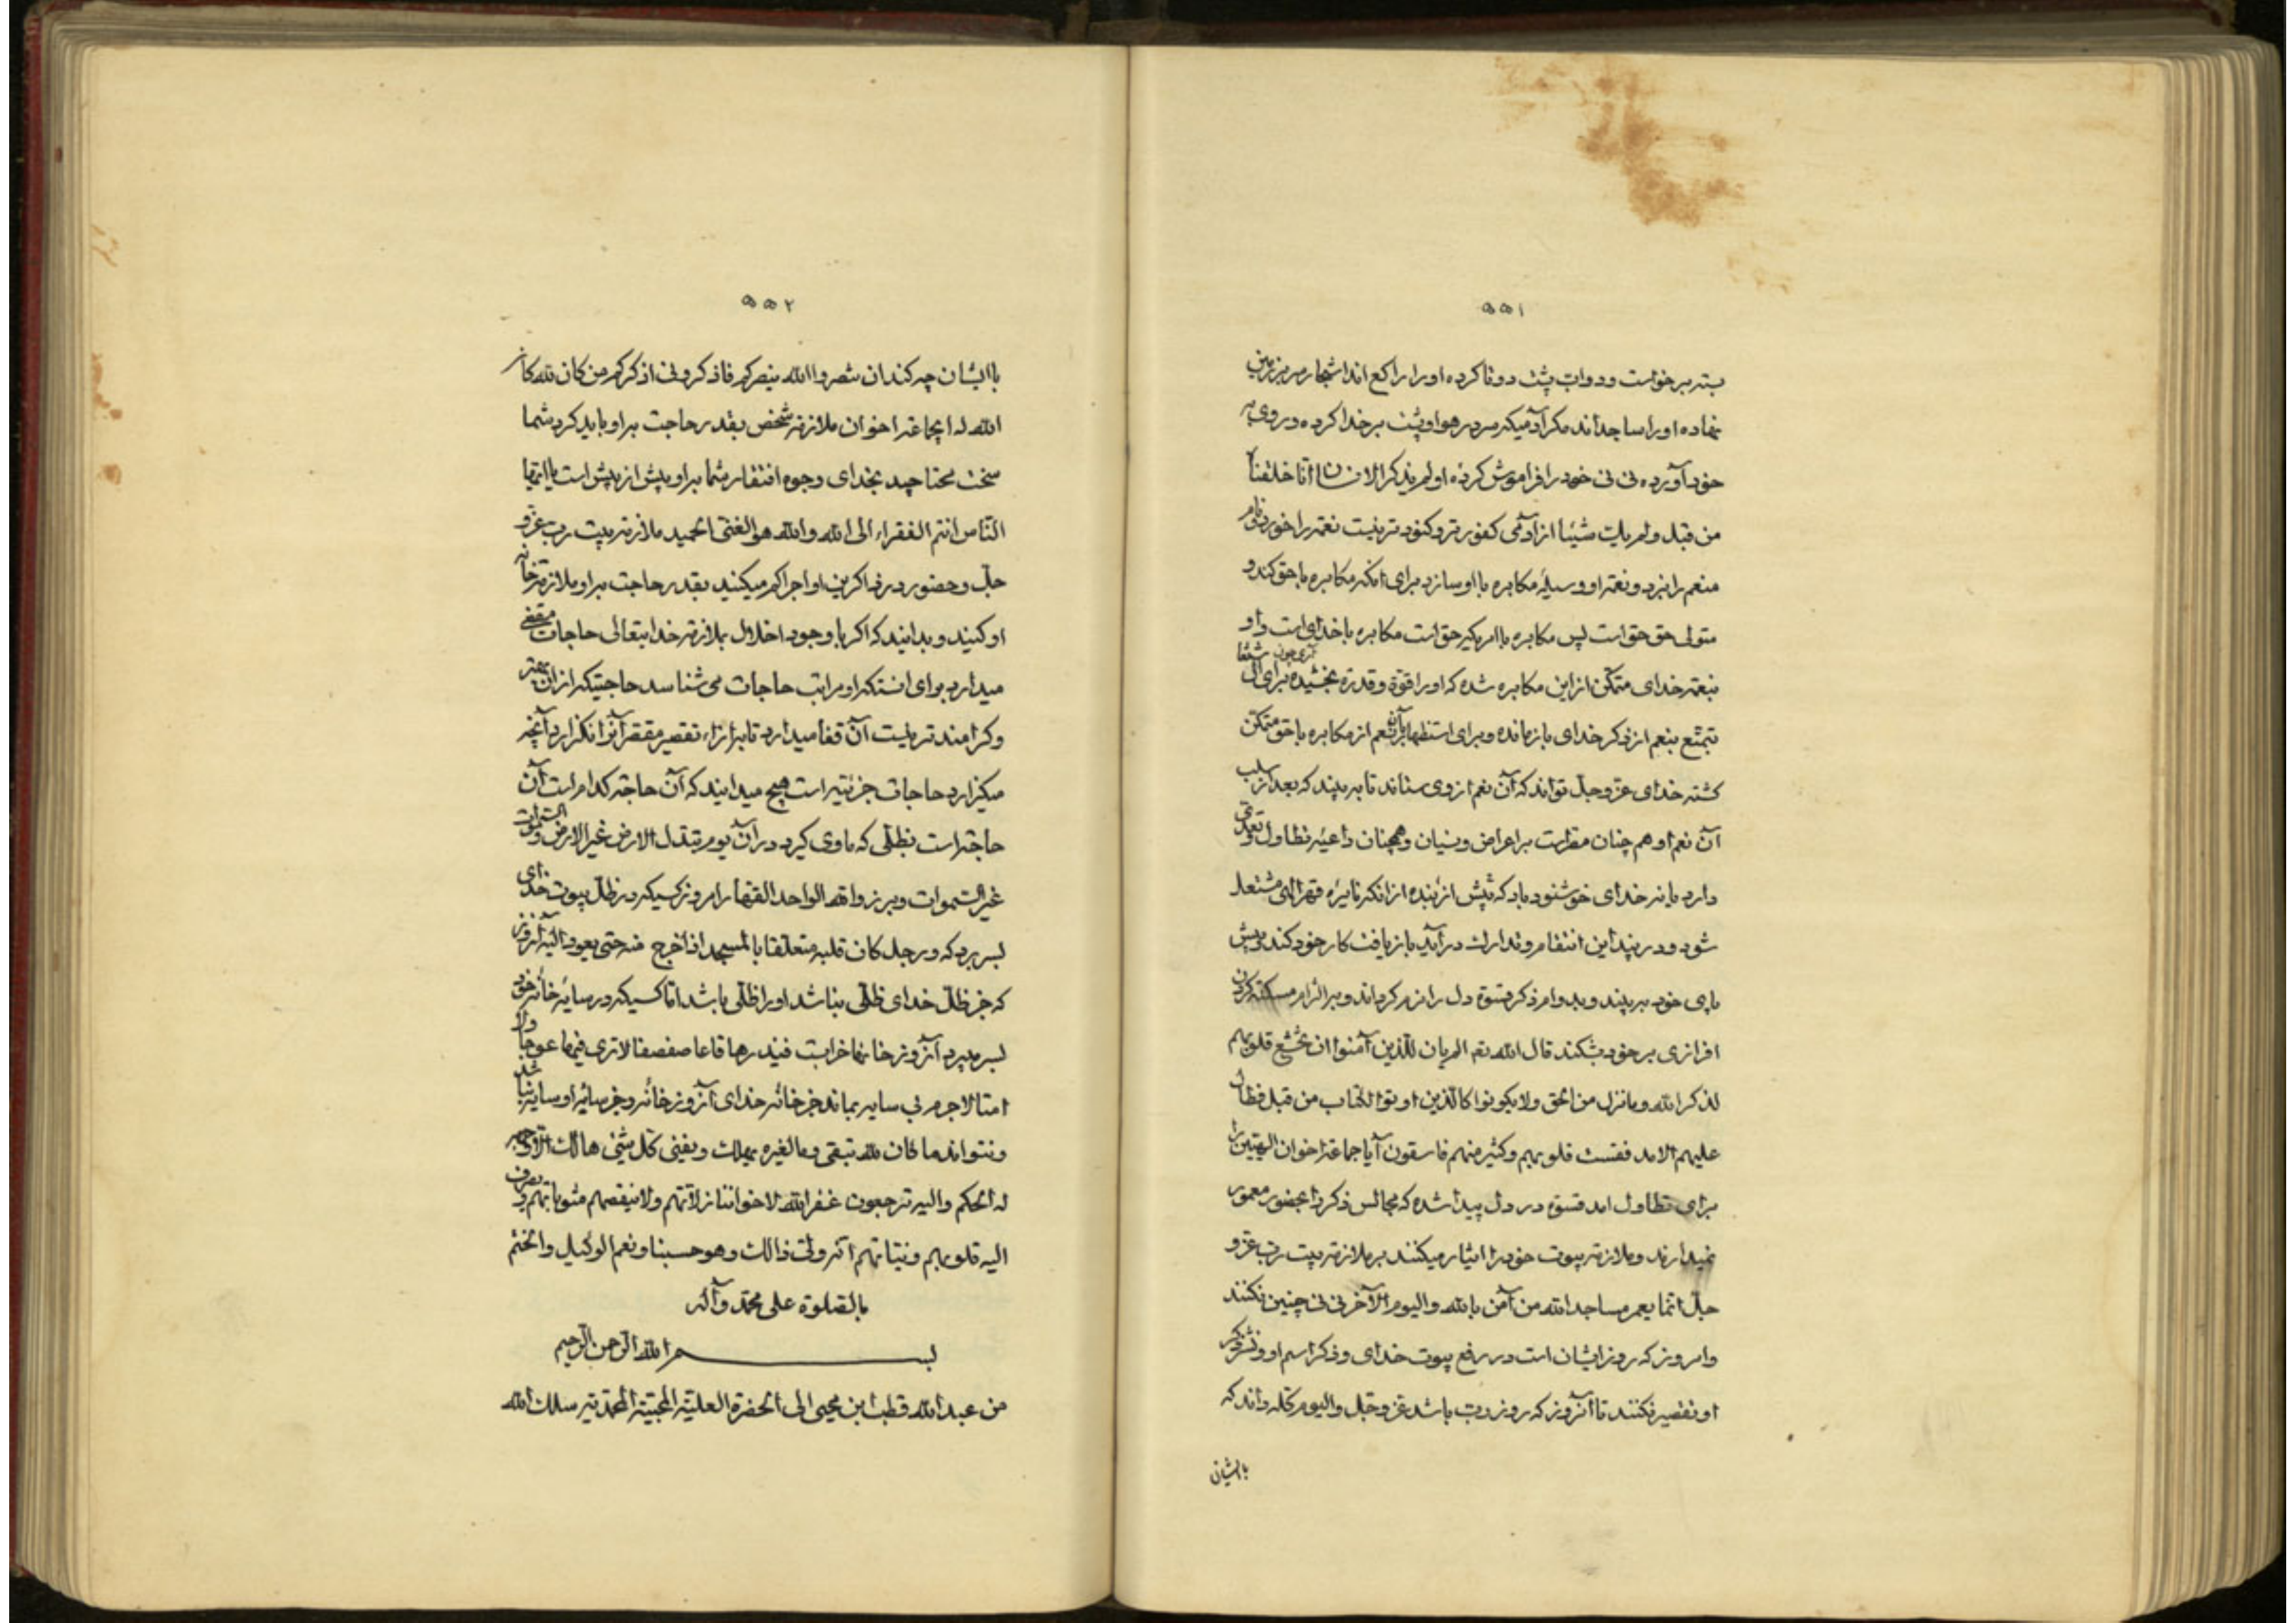 ۵۵۱
بسته برخواست ودواب پشت دوتا کرده اورا راکع اند اشجار سر بر زمین
نهاده اورا ساجداند مکر آدمیکه سر در هوا وپشت بر خدا کرده ودر وی به
خود آورده نی نی خود را فراموش کرده اولم یذکر الانسان انا خلقناه
من قبل ولم یک شیئا از آدمی کفورتر وکنودتر نیست نعمة را خورد ونام
منعم را نبرد ونعمة او وسیلهٔ مکابره با او سازد برای انکه مکابره با حق کند و
متولی حق حق است پس مکابره با امریکه حق است مکابره با خدای است واو
بنعمة خدای متمکن از این مکابره شده که اورا قوة وقدرة بخشیده برای
تمتّع بنعم از ذکر خدای بازمانده وبرای استظهار بآن نعم از مکابره با حق متمکن
کشته خدای عزّ وجلّ تواند که آن نعم از وی ستاند تا به بیند که بعد از سلب
آن نعم او هم چنان مصر است بر اعراض ونسیان وهمچنان داعیهٔ تطاول وتعدی
دارد یا نه خدای خوشنود باد که پیش از بنده از انکه نایرهٔ قهر الهی مشتعل
شود ودر پند این انتقام وتدارک در آید بازیافت کار خود کند وپیش
پای خود به بیند وبدوام ذکر قسوة دل را نرم کرداند وبر الزام مسکنة کردن
افرازی بر خود بشکند قال الله تعالی الم یان للّذین آمنوا ان تخشع قلوبهم
لذکر الله وما نزل من الحق ولا یکونوا کالّذین اوتوا الکتاب من قبل فطال
علیهم الامد فقست قلوبهم وکثیر منهم فاسقون آیا جماعة اخوان الهیین را
برای تطاول امد قسوة در دل پیدا شده که مجالس ذکر را بحضور معمور
نمیدارند وملازمة بیوت خود را ایثار میکنند بر ملازمة بیت رب عزّ و
جلّ انما یعمر مساجد الله من آمن بالله والیوم الآخر نی نی چنین نکنند
وامروز که روز ایشان است در رفع بیوت خدای وذکر اسم او ونشر ذکر
او تقصیر نکنند تا آنروز که روز رب باشد عزّ وجلّ والیوم کله داند که
با ایشان
۵۵۲
با ایشان چه کند ان تنصروا الله ینصرکم فاذکرونی اذکرکم من کان لله کان
الله له ایجماعة اخوان ملازمة شخص بقدر حاجت بر او باید کرد شما
سخت محتاجید بخدای وجوه افتقار شما بر او بیش از پیش است یا ایها
النّاس انتم الفقراء الی الله والله هو الغنی الحمید ملازمة بیت رب عزّ و
جلّ وحضور در ذاکرین او اجرا کم میکنید بقدر حاجت بر او ملازمة خانه
او کنید وبدانید که اکر با وجود اخلال بملازمة خدایتعالی حاجات مقضی
میدارد برای انستکه او مراتب حاجات می شناسد حاجتیکه از ان بهتر
وکرامندتر نیست آن قضا میدارد تا بر ازاء تقصیر مقصر آنرا نکزارد آنچه
میکزارد حاجات جزئیه است هیچ میدانید که آن حاجة کدام است آن
حاجة است بظلّی که ماوی کیرد در آن یوم تبدل الارض غیر الارض والسموات
غیر السّموات وبرزوا لله الواحد القهار امروز کسیکه در ظلّ بیوت خدای
بسر برد که ورجل کان قلبه متعلقا بالمسجد اذا خرج منه حتی یعود الیه آنروز
که جز ظلّ خدای ظلّی نباشد اورا ظلّی باشد اما کسیکه در سایهٔ خانه خود
بسر میبرد آنروز خانها خرابست فیذرها قاعا صفصفا لا تری فیها عوجا ولا
امتا لاجرم بی سایه بماند جز خانه خدای آنروز خانه وجز سایهٔ او سایه نباشد
ونتواند ما کان لله تبقی وما لغیره یهلک ویفنی کل شیئ هالک الا وجهه
له الحکم والیه ترجعون غفر الله لاخواننا زلاتهم ولا ینقصهم مثوباتهم ویصرف
الیه قلوبهم ونیاتهم انه ولی ذالک وهو حسبنا ونعم الوکیل والختم
بالصّلوة علی محمّد وآله
بسم الله الرّحمن الرّحیم
من عبد الله قطب ابن محیی الی الحضرة العلیّة المحبّیة المحمّدیّة سلک الله